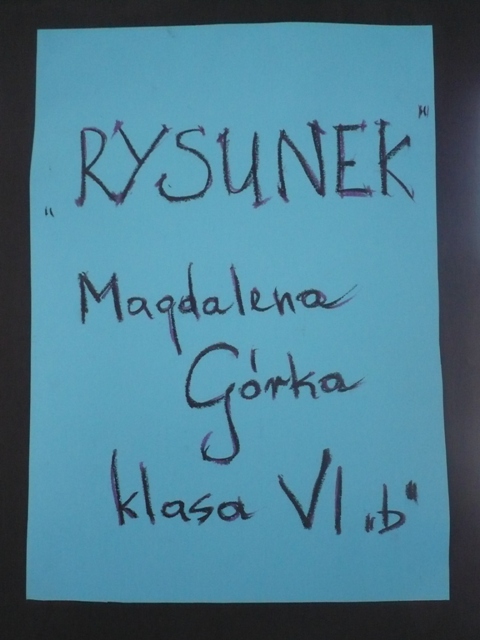 „RYSUNEK”
Magdalena
Górka
klasa VI „b”